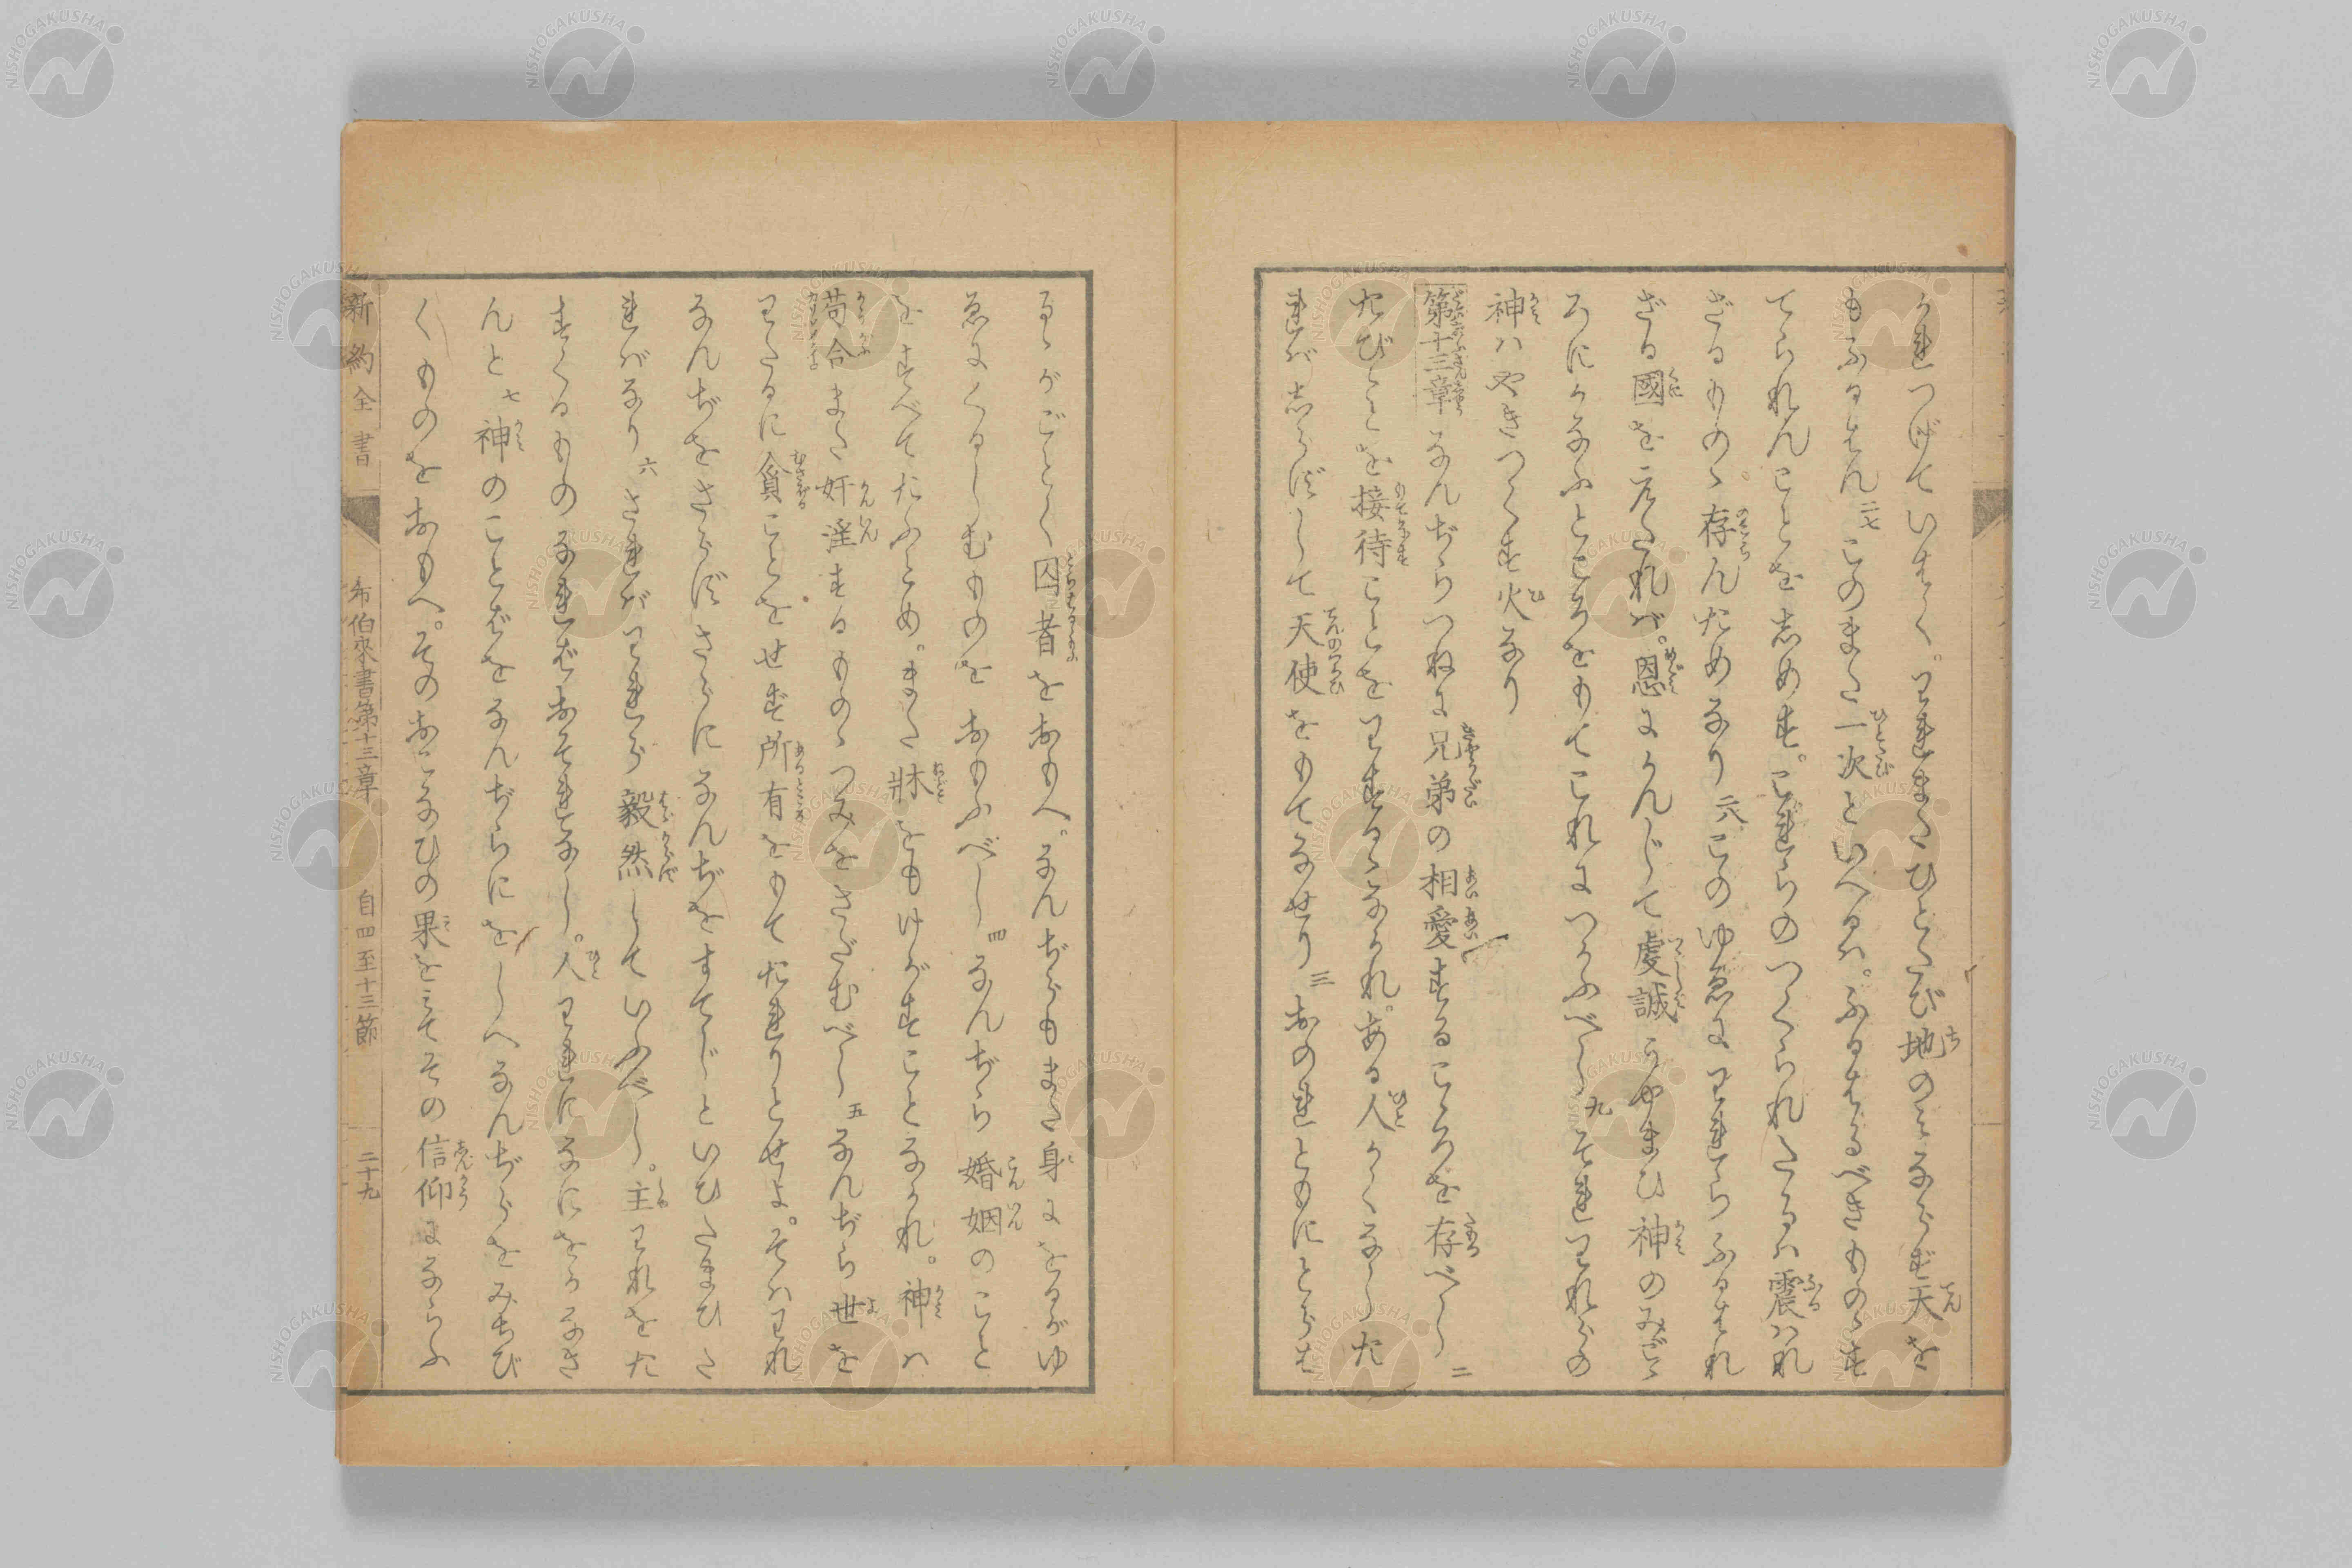 うれつげていはく。われまたひとたび地のみならず天を
もふるはん二七このまた一次といへるハ。ふるはるべきものゝす
てられんことをしめす。これらのつくられたるハ震ハれ
ざるものゝ存んためなり二八このゆゑにわれらふるはれ
ざる國をえたれバ。恩にかんじて虔誠うやまひ神のみこゝ
ろにかなふところをもてこれにつかふべし九それわれらの
神ハやきつくす火なり
第十三章なんぢらつねに兄弟の相愛するこゝろを存べし二
たびゞとを接待ことをわするゝなかれ。ある人かくなした
ればしらずして天使をもてなせり三おのれともにとらは
るゝがごとく囚者をおもへ。なんぢらもまた身にをるがゆ
ゑにくるしむものをおもふべし四なんぢら婚姻のこと
をすべてたふとめ。また牀をもけがすことなかれ。神ハ
苟合また奸淫するものゝつみをさだむべし五なんぢら世を
わたるに貪ことをせず所有をもてたれりとせよ。そハわれ
なんぢをさらずさらになんぢをすてじといひたまひた
ればなり六さればわれら毅然していふべし。主われをた
すくるものなればおそれなし。人われになにをかなさ
んと七神のことばをなんぢらにをしへなんぢらをみちび
くものをおもへ。そのおこなひの果をみてその信仰にならふ
新約全書
希伯來書第十三章
自四至十三節
二十九